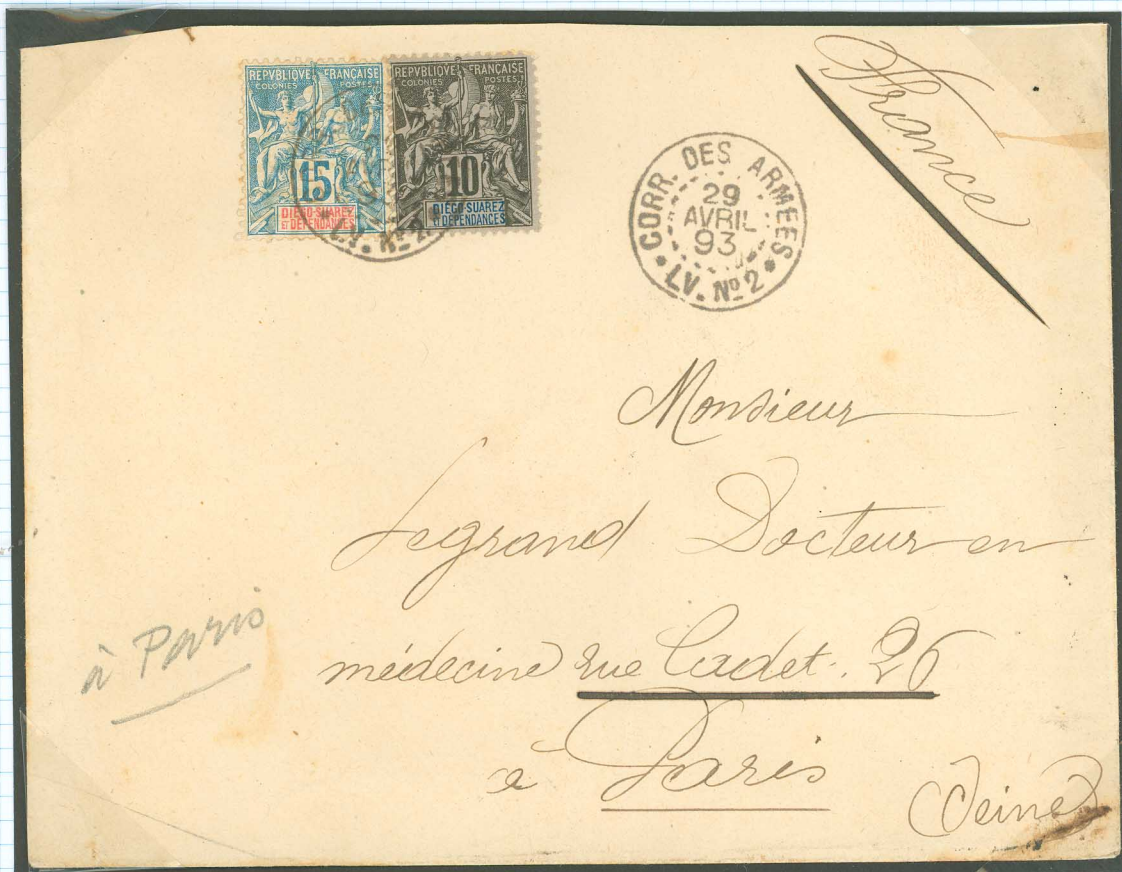 REPVBLIQVE FRANÇAISE
COLONIES POSTES
15
DIÉGO-SUAREZ
ET DÉPENDANCES
REPVBLIQVE FRANÇAISE
COLONIES POSTES
10
DIÉGO-SUAREZ
ET DÉPENDANCES
LV. No 2
CORR. DES ARMÉES
29
AVRIL
93
LV. No 2
France
Monsieur
Legrand Docteur en
médecine rue Cadet. 26
à Paris
à Paris
(Seine)